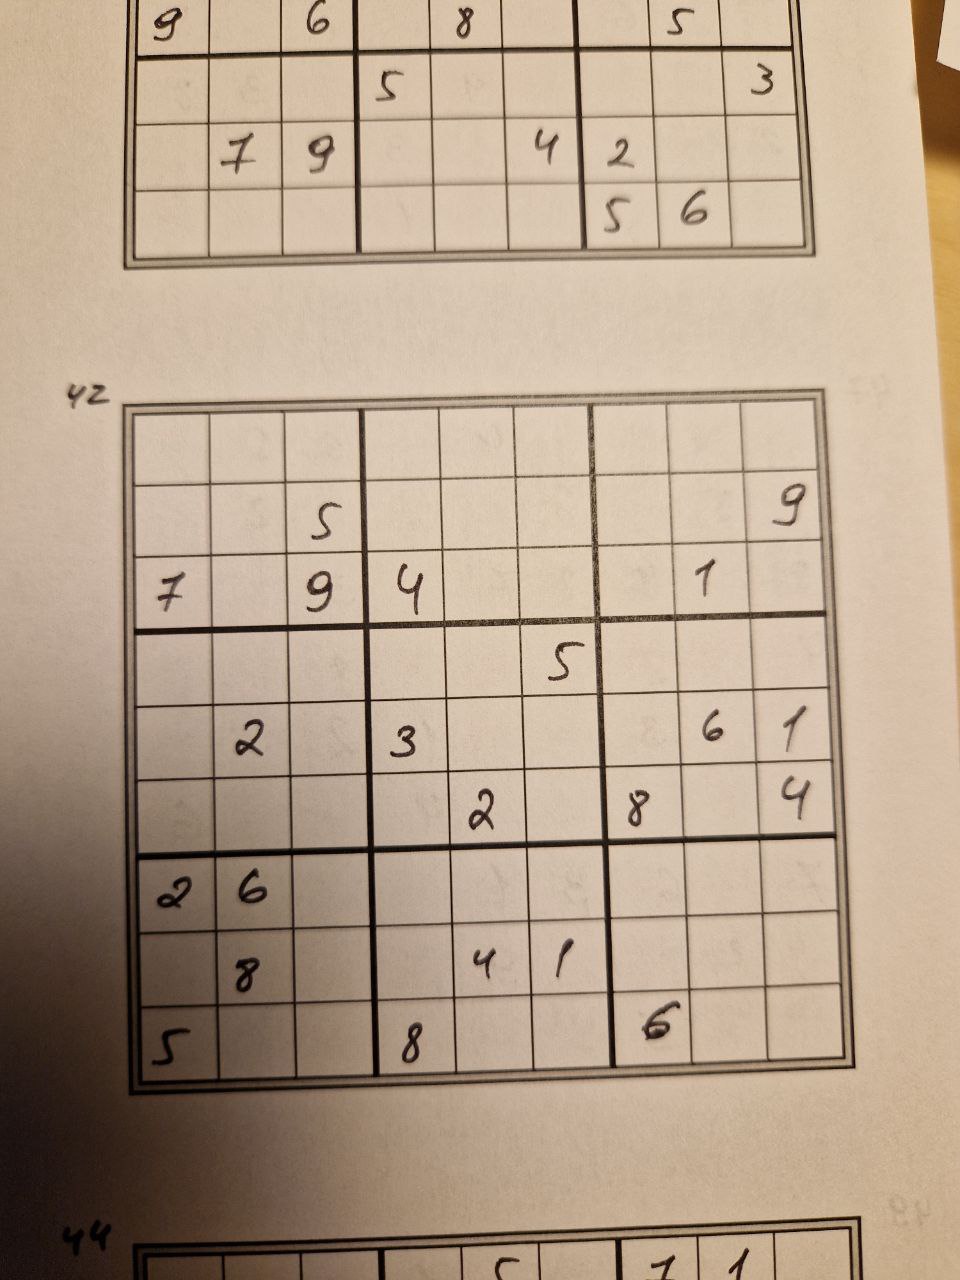 9 6 8 5
5 3
7 9 4 2
5 6
42
5 9
7 9 4 1
5
2 3 6 1
2 8 4
2 6
8 4 1
5 8 6
44
5 7 1